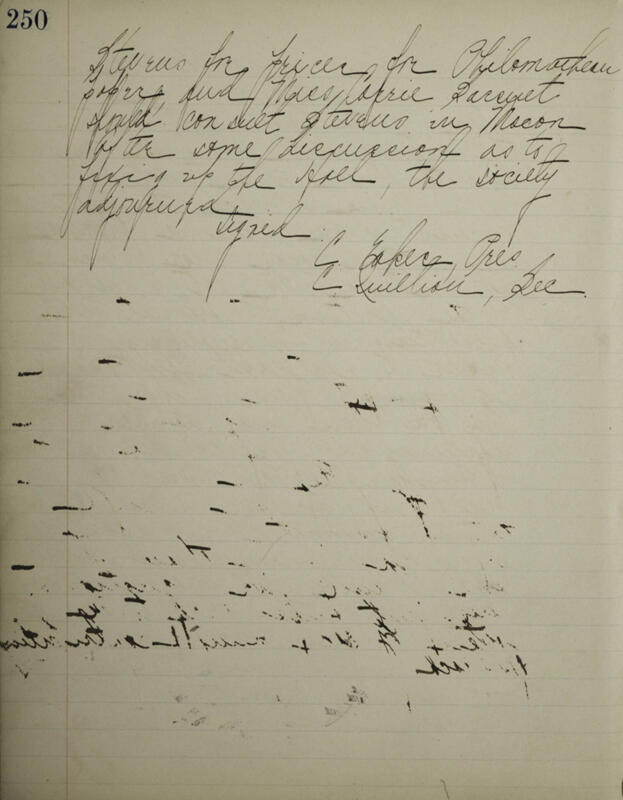 250
Stevens for prices for Philomathean
paper and Miss Carrie Bacquet
should consult Stevens in Macon
after some discussion as to
fixing up the Hall, the society
adjourned
Signed
E Baker, Pres
C Quillian, Sec